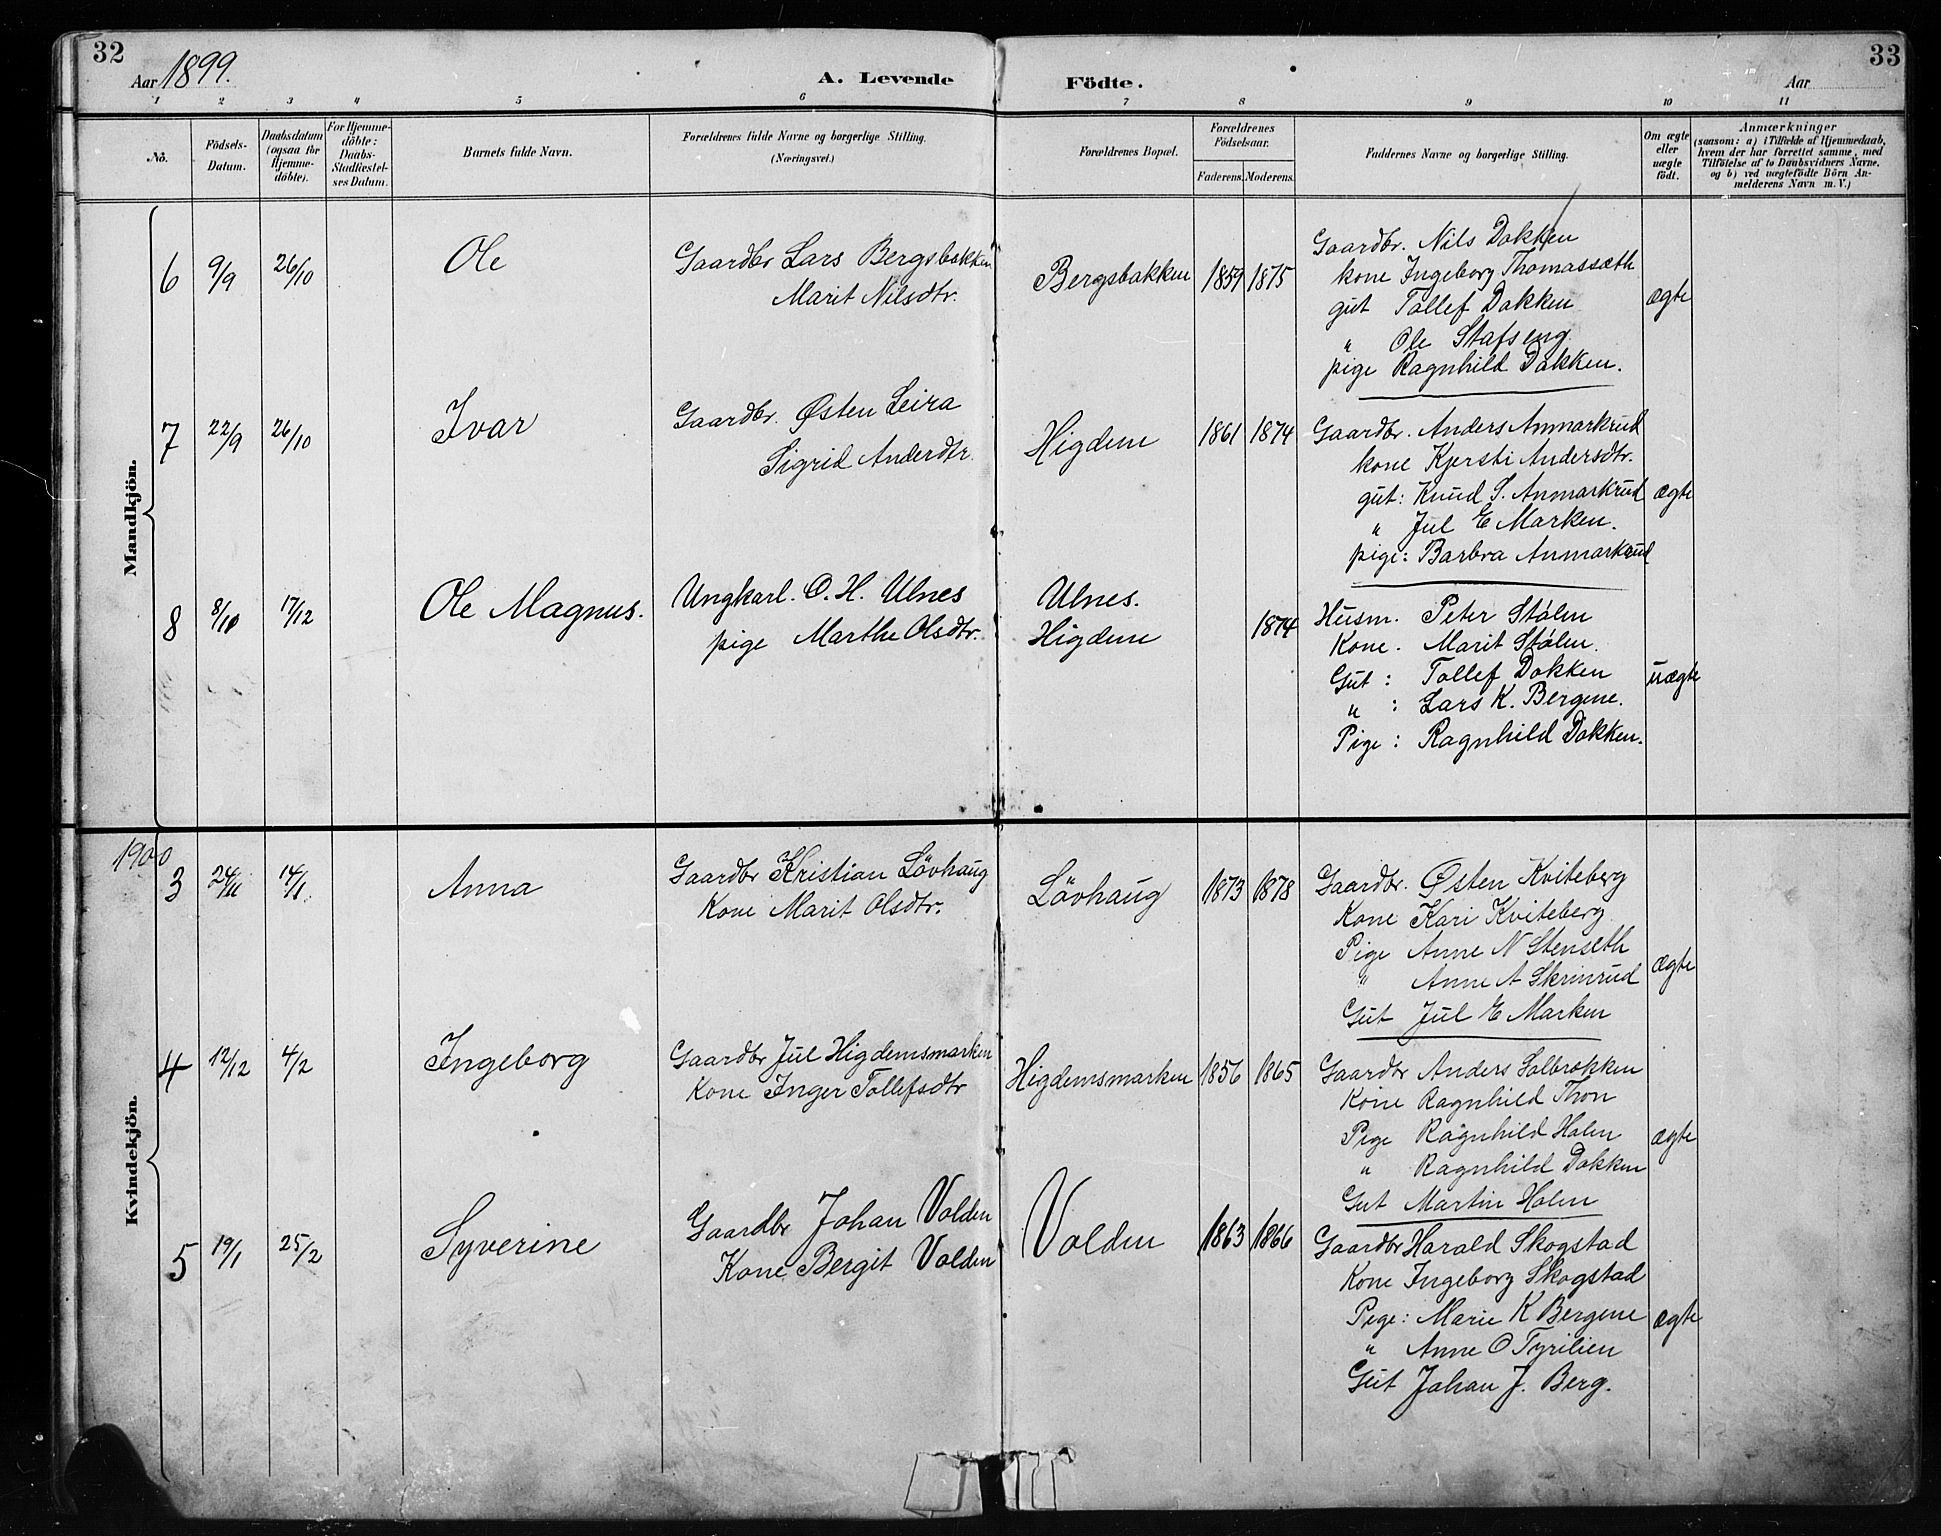 32
Aar 1899.
A. Levende Födte.
33
Aar
1 2 3 4 5 6 7 8 9 10 11
No.
Födsels-Datum.
Daabsdatum (ogsaa for Hjemme-döbte).
For Hjemme-döbte: Daabs-Stadfæstel-ses Datum.
Barnets fulde Navn.
Forældrenes fulde Navne og borgerlige Stilling.
(Næringsvei.)
Forældrenes Bopæl.
Forældrenes Födselsaar.
Faderens. Moderens.
Faddernes Navne og borgerlige Stilling.
Om ægte eller uægte födt.
Anmærkninger
(saasom: a) i Tilfælde af Hjemmedaab,
hvem der har forrettet samme, med
Tilföielse af to Daabsvidners Navne,
og b) ved uægtefödte Börn An-
melderens Navn m. V.)
Mandkjön.
6 9/9 26/10 Ole Gaardbr Lars Bergsbakken Bergsbakken 1859 1875 Gaardbr. Nils Dokken
Marit Nilsdtr. kone Ingeborg Thomassæth
gut Tollef Dokken ægte
" Ole Stafseng
pige Ragnhild Dokken.
7 22/9 26/10 Ivar Gaardbr. Østen Leira Higdem 1861 1874 Gaardbr. Anders Anmarkrud
Sigrid Anderdtr. kone Kjersti Andersdtr.
gut: Knud S. Anmarkrud ægte
" Jul E Marken.
pige: Barbra Anmarkrud
8 8/10 17/12 Ole Magnus. Ungkarl. O. H. Ulnes Ulnes. Husm. Peter Stölen
pige Marthe Olsdtr. Higdem 1874 Kone. Marit Stölen.
Gut: Tollef Dokken uægte
" : Lars K. Bergene.
Pige: Ragnhild Dokken.
Kvindekjön.
1900
3 24/11 14/1. Anna Gaardbr Kristian Lövhaug Lövhaug 1873 1878 Gaardbr. Østen Kviteberg
Kone Marit Olsdtr. Kone Kari Kviteberg
Pige Anne N Stenseth ægte
" Anne A Skrinrud
Gut Jul E Marken
4 12/12 4/2 Ingeborg Gaardbr Jul Higdemsmarken Higdemsmarken 1856 1865 Gaardbr Anders Solbrekken
Kone Inger Tollefsdtr Kone Ragnhild Thon
Pige Ragnhild Holen ægte
" Ragnhild Dokken
Gut Martin Holen
5 19/1 25/2 Syverine Gaardbr Johan Volden Volden 1863 1866 Gaardbr Harald Skogstad
Kone Bergit Volden Kone Ingeborg Skogstad
Pige: Marie K Bergene ægte
" Anne O Tyrilien
Gut Johan J. Berg.